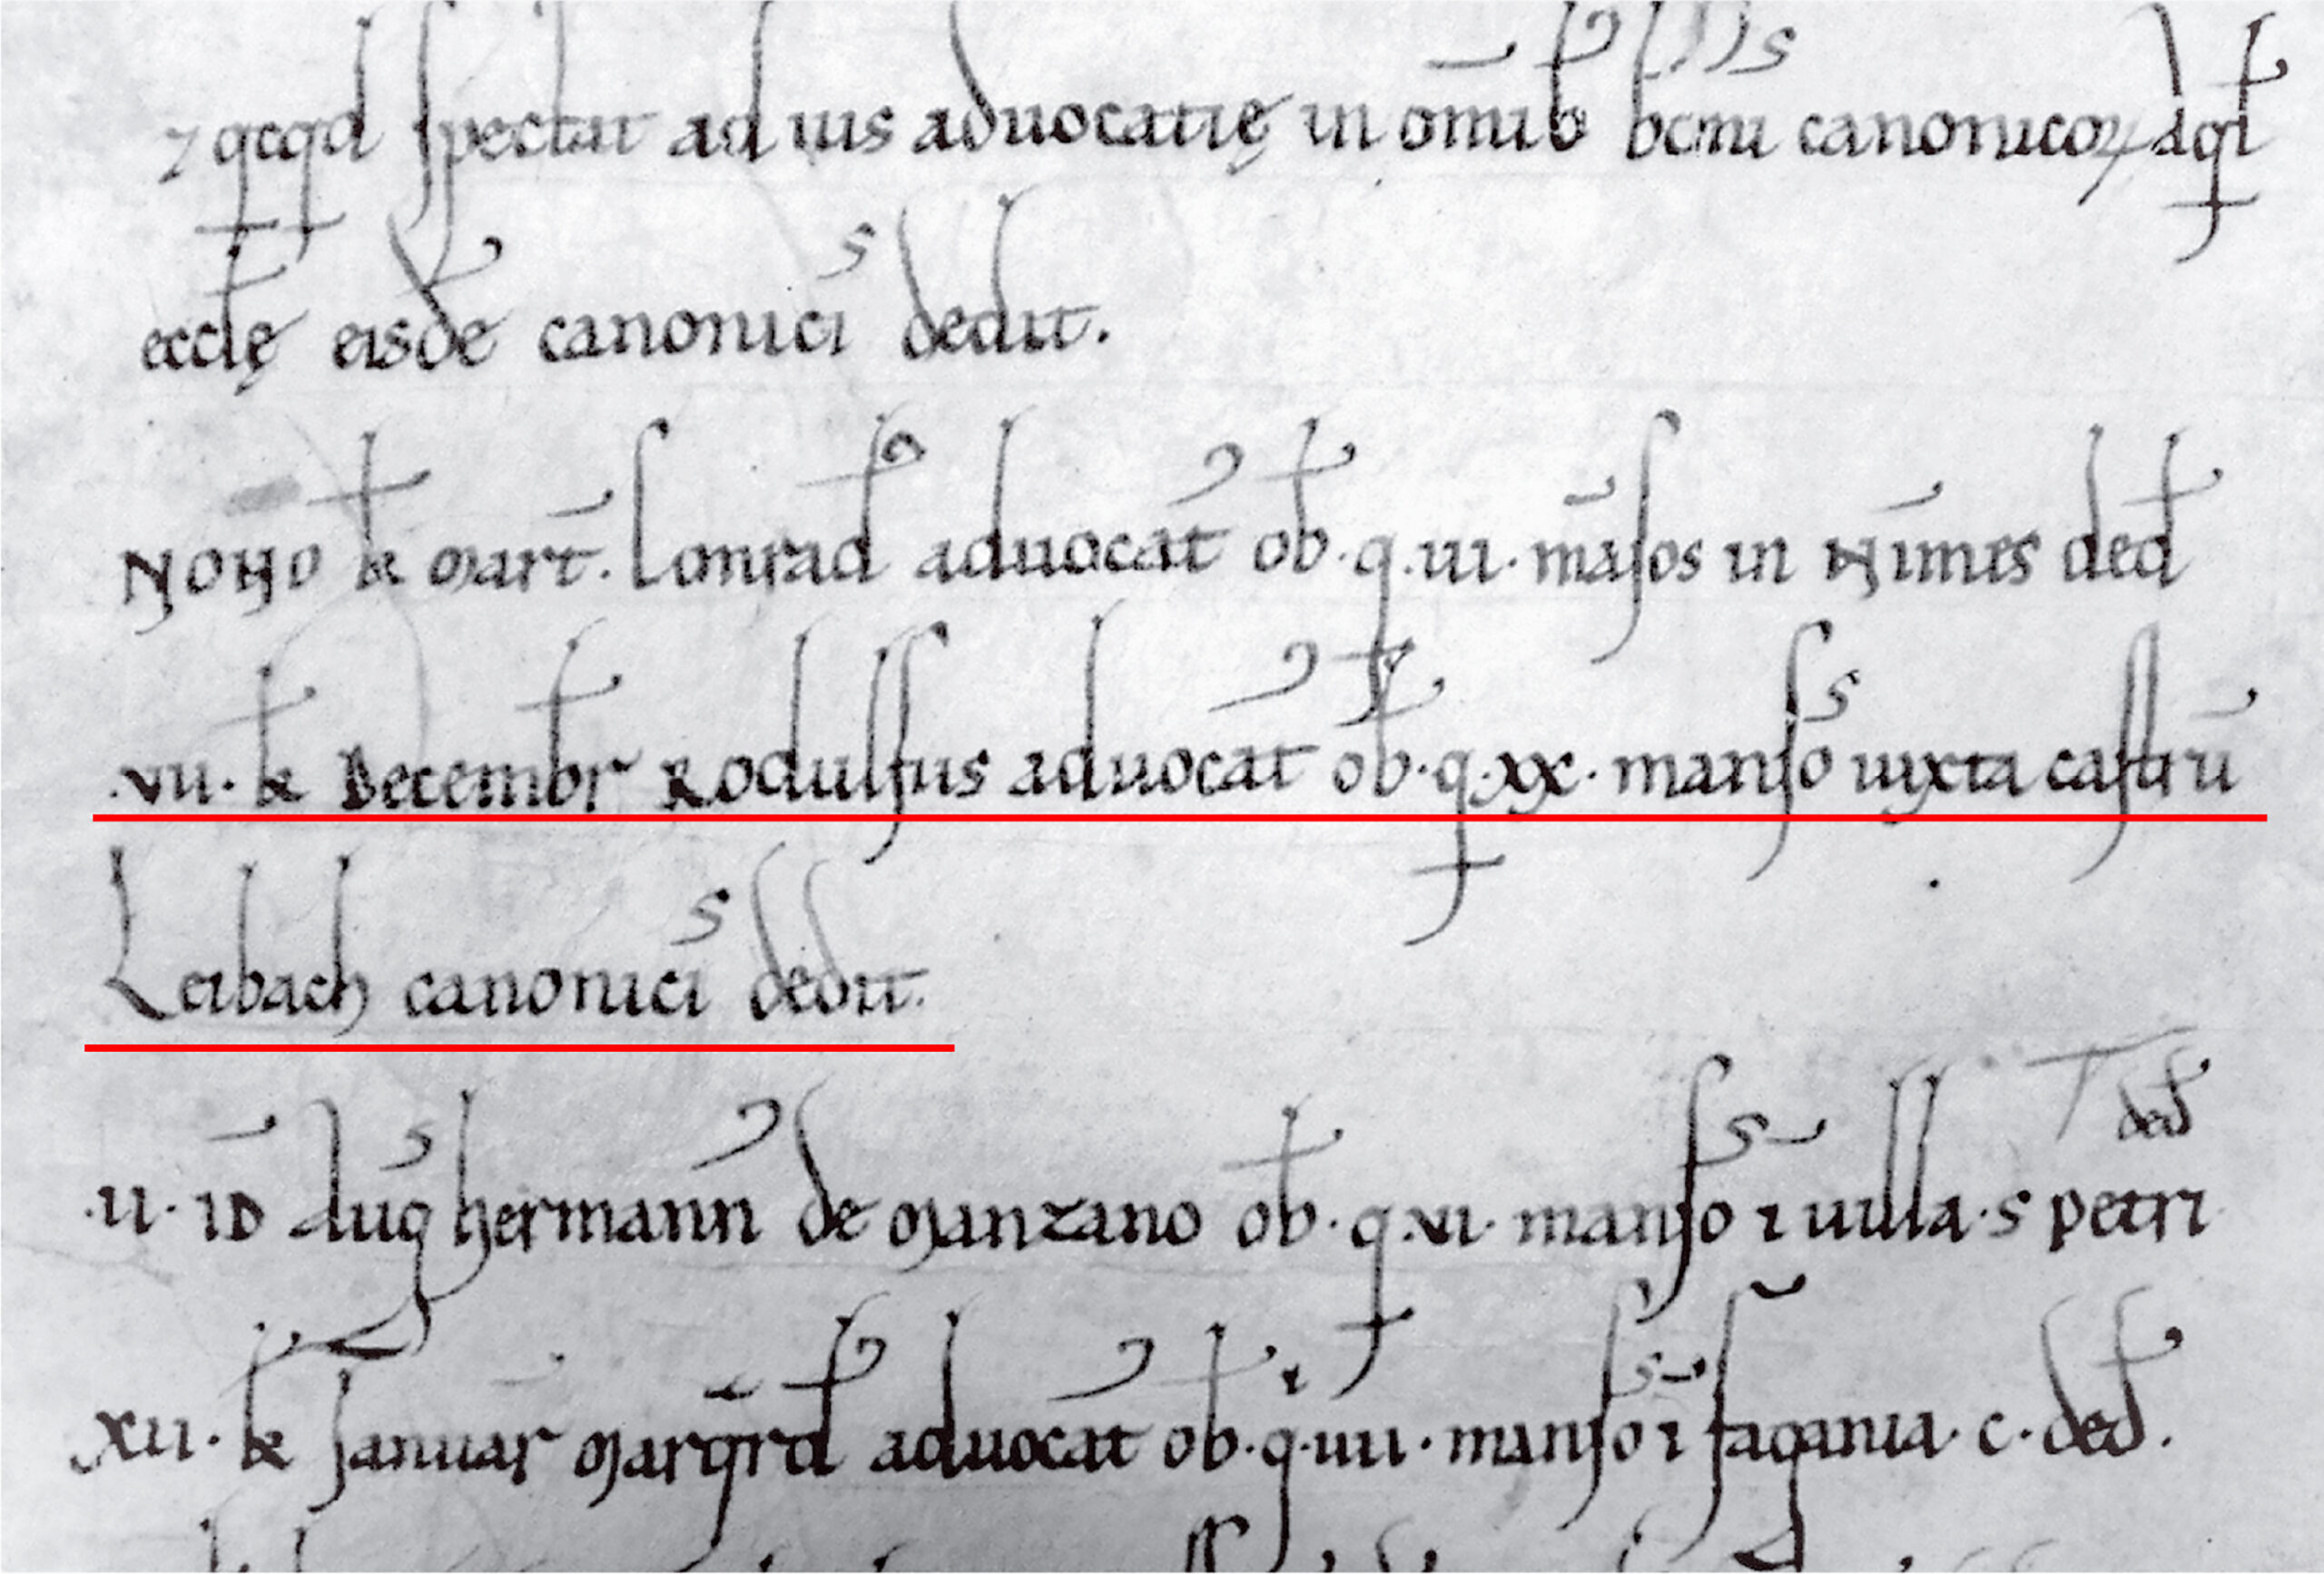 ⁊ qcqd spectat ad ius aduocatię in om̄ib; bonis canonicoꝝ aql̄
eccl̄ę eisdē canonicis dedit.
Nono kł marт̄. Conrad᷒ aduocat᷒ ob̄. q̄. iii. māsos in Nimis ded̄
.vii. kł Decembr Rodulfus aduocat᷒ ob̄. q̄. xx. mansos iuxta castrū
Leibach canonicis dedit.
.ii. id̄ Auḡ hermann᷒ de Manzano ob̄. q̄. vi. mansos ī uilla. s petri
ded̄
xii. kł Januar Marq̄rd᷒ aduocat᷒ ob̄. q̄. iiii. mansos ī fagania. c. ded̄.